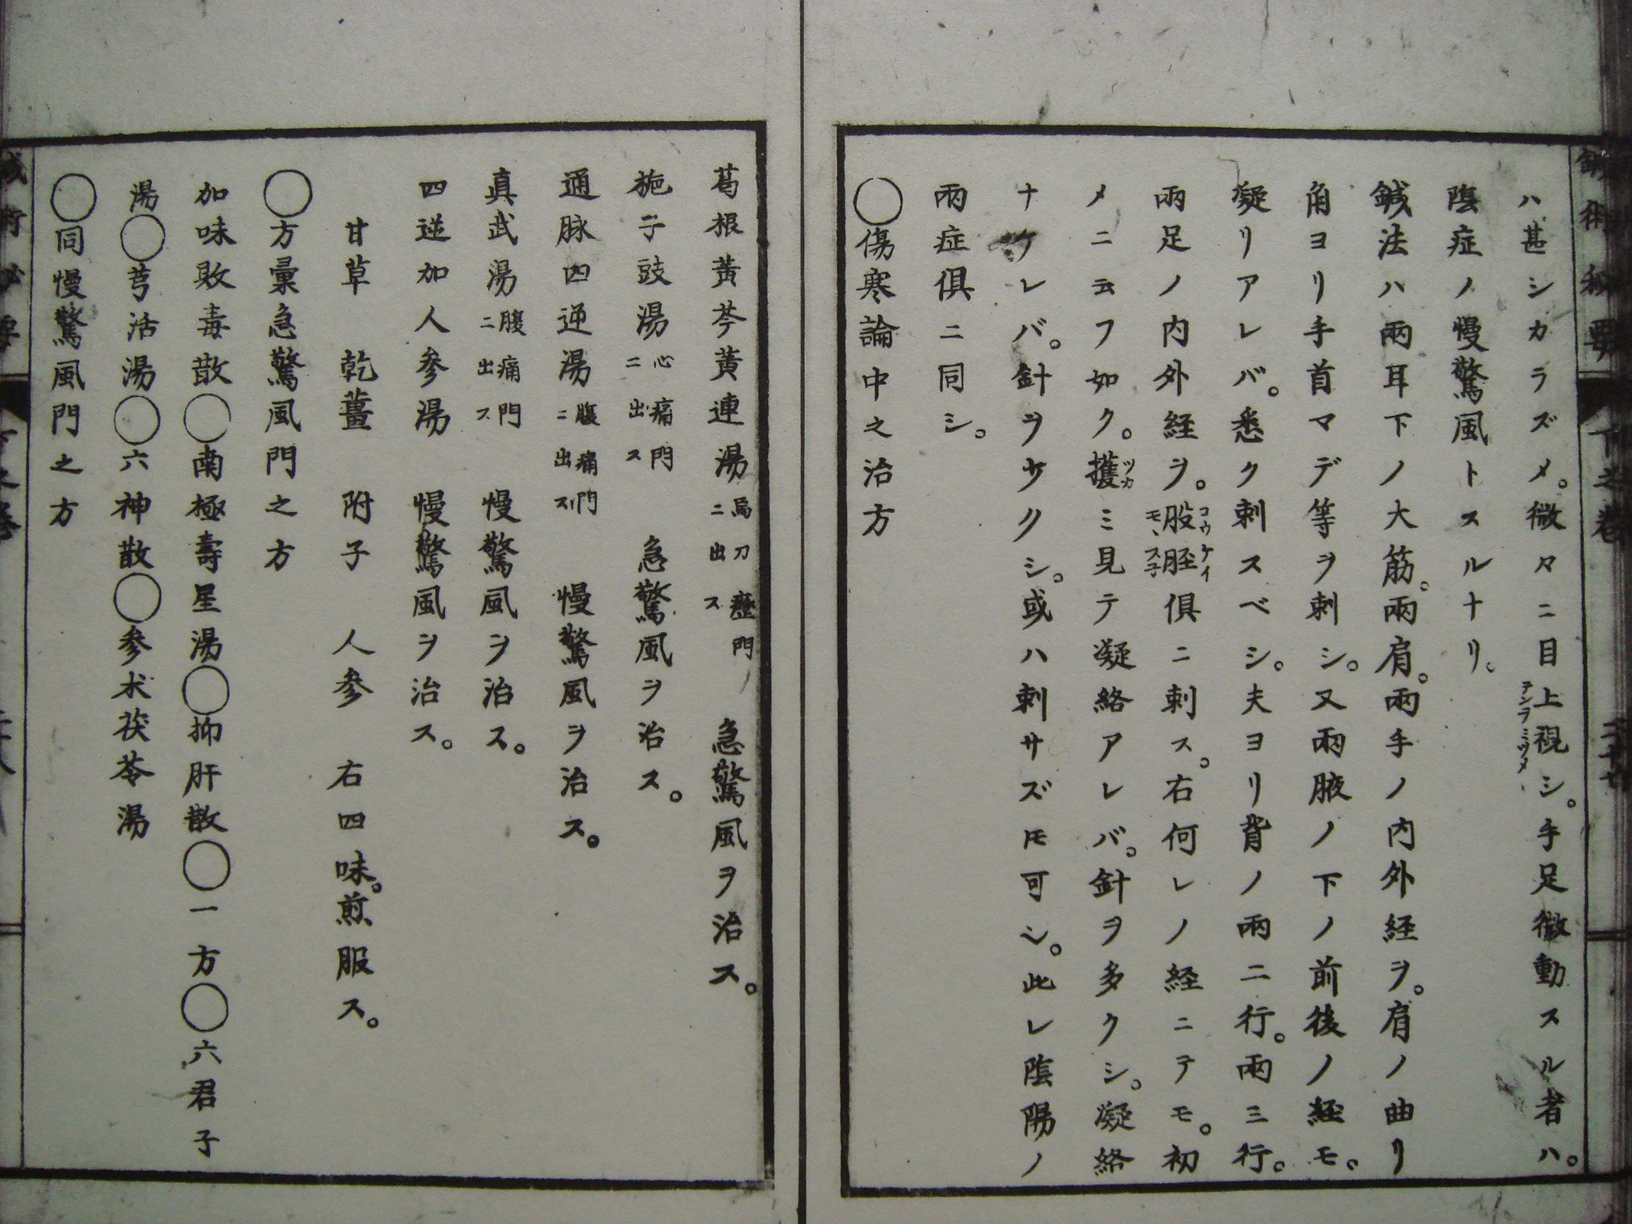 ハ甚シカラズメ。微々ニ目上視シ。手足微動スル者ハ。
テンヲミツメ
陰症ノ慢驚風トスルナリ。
鍼法ハ兩耳下ノ大筋。兩肩。兩手ノ内外経ヲ。肩ノ曲リ
角ヨリ手首マデ等ヲ刺シ。又兩腋ノ下ノ前後ノ経モ。
凝リアレバ。悉ク刺スベシ。夫ヨリ背ノ兩二行。兩三行。
兩足ノ内外経ヲ。股胫俱ニ刺ス。右何レノ経ニテモ。初
コウケイ
メニ云フ如ク。攫ミ見テ凝絡アレバ。針ヲ多クシ。凝絡
ツカ
ナケレバ。針ヲ少クシ。或ハ刺サズㇳモ可シ。此レ陰陽ノ
兩症俱ニ同シ。
○傷寒論中之治方
葛根黃芩黃連湯 急驚風ヲ治ス。
ニ出ス
栀子豉湯 心痛門ニ出ス 急驚風ヲ治ス。
通脉四逆湯 腹痛門ニ出ス 慢驚風ヲ治ス。
真武湯 腹痛門ニ出ス 慢驚風ヲ治ス。
四逆加人参湯 慢驚風ヲ治ス。
甘草 乾薑 附子 人参 右四味。煎服ス。
○方彙急驚風門之方
加味敗毒散○南極壽星湯○抑肝散○一方○六君子
湯○芎活湯○六神散○参朮茯苓湯
○同慢驚風門之方